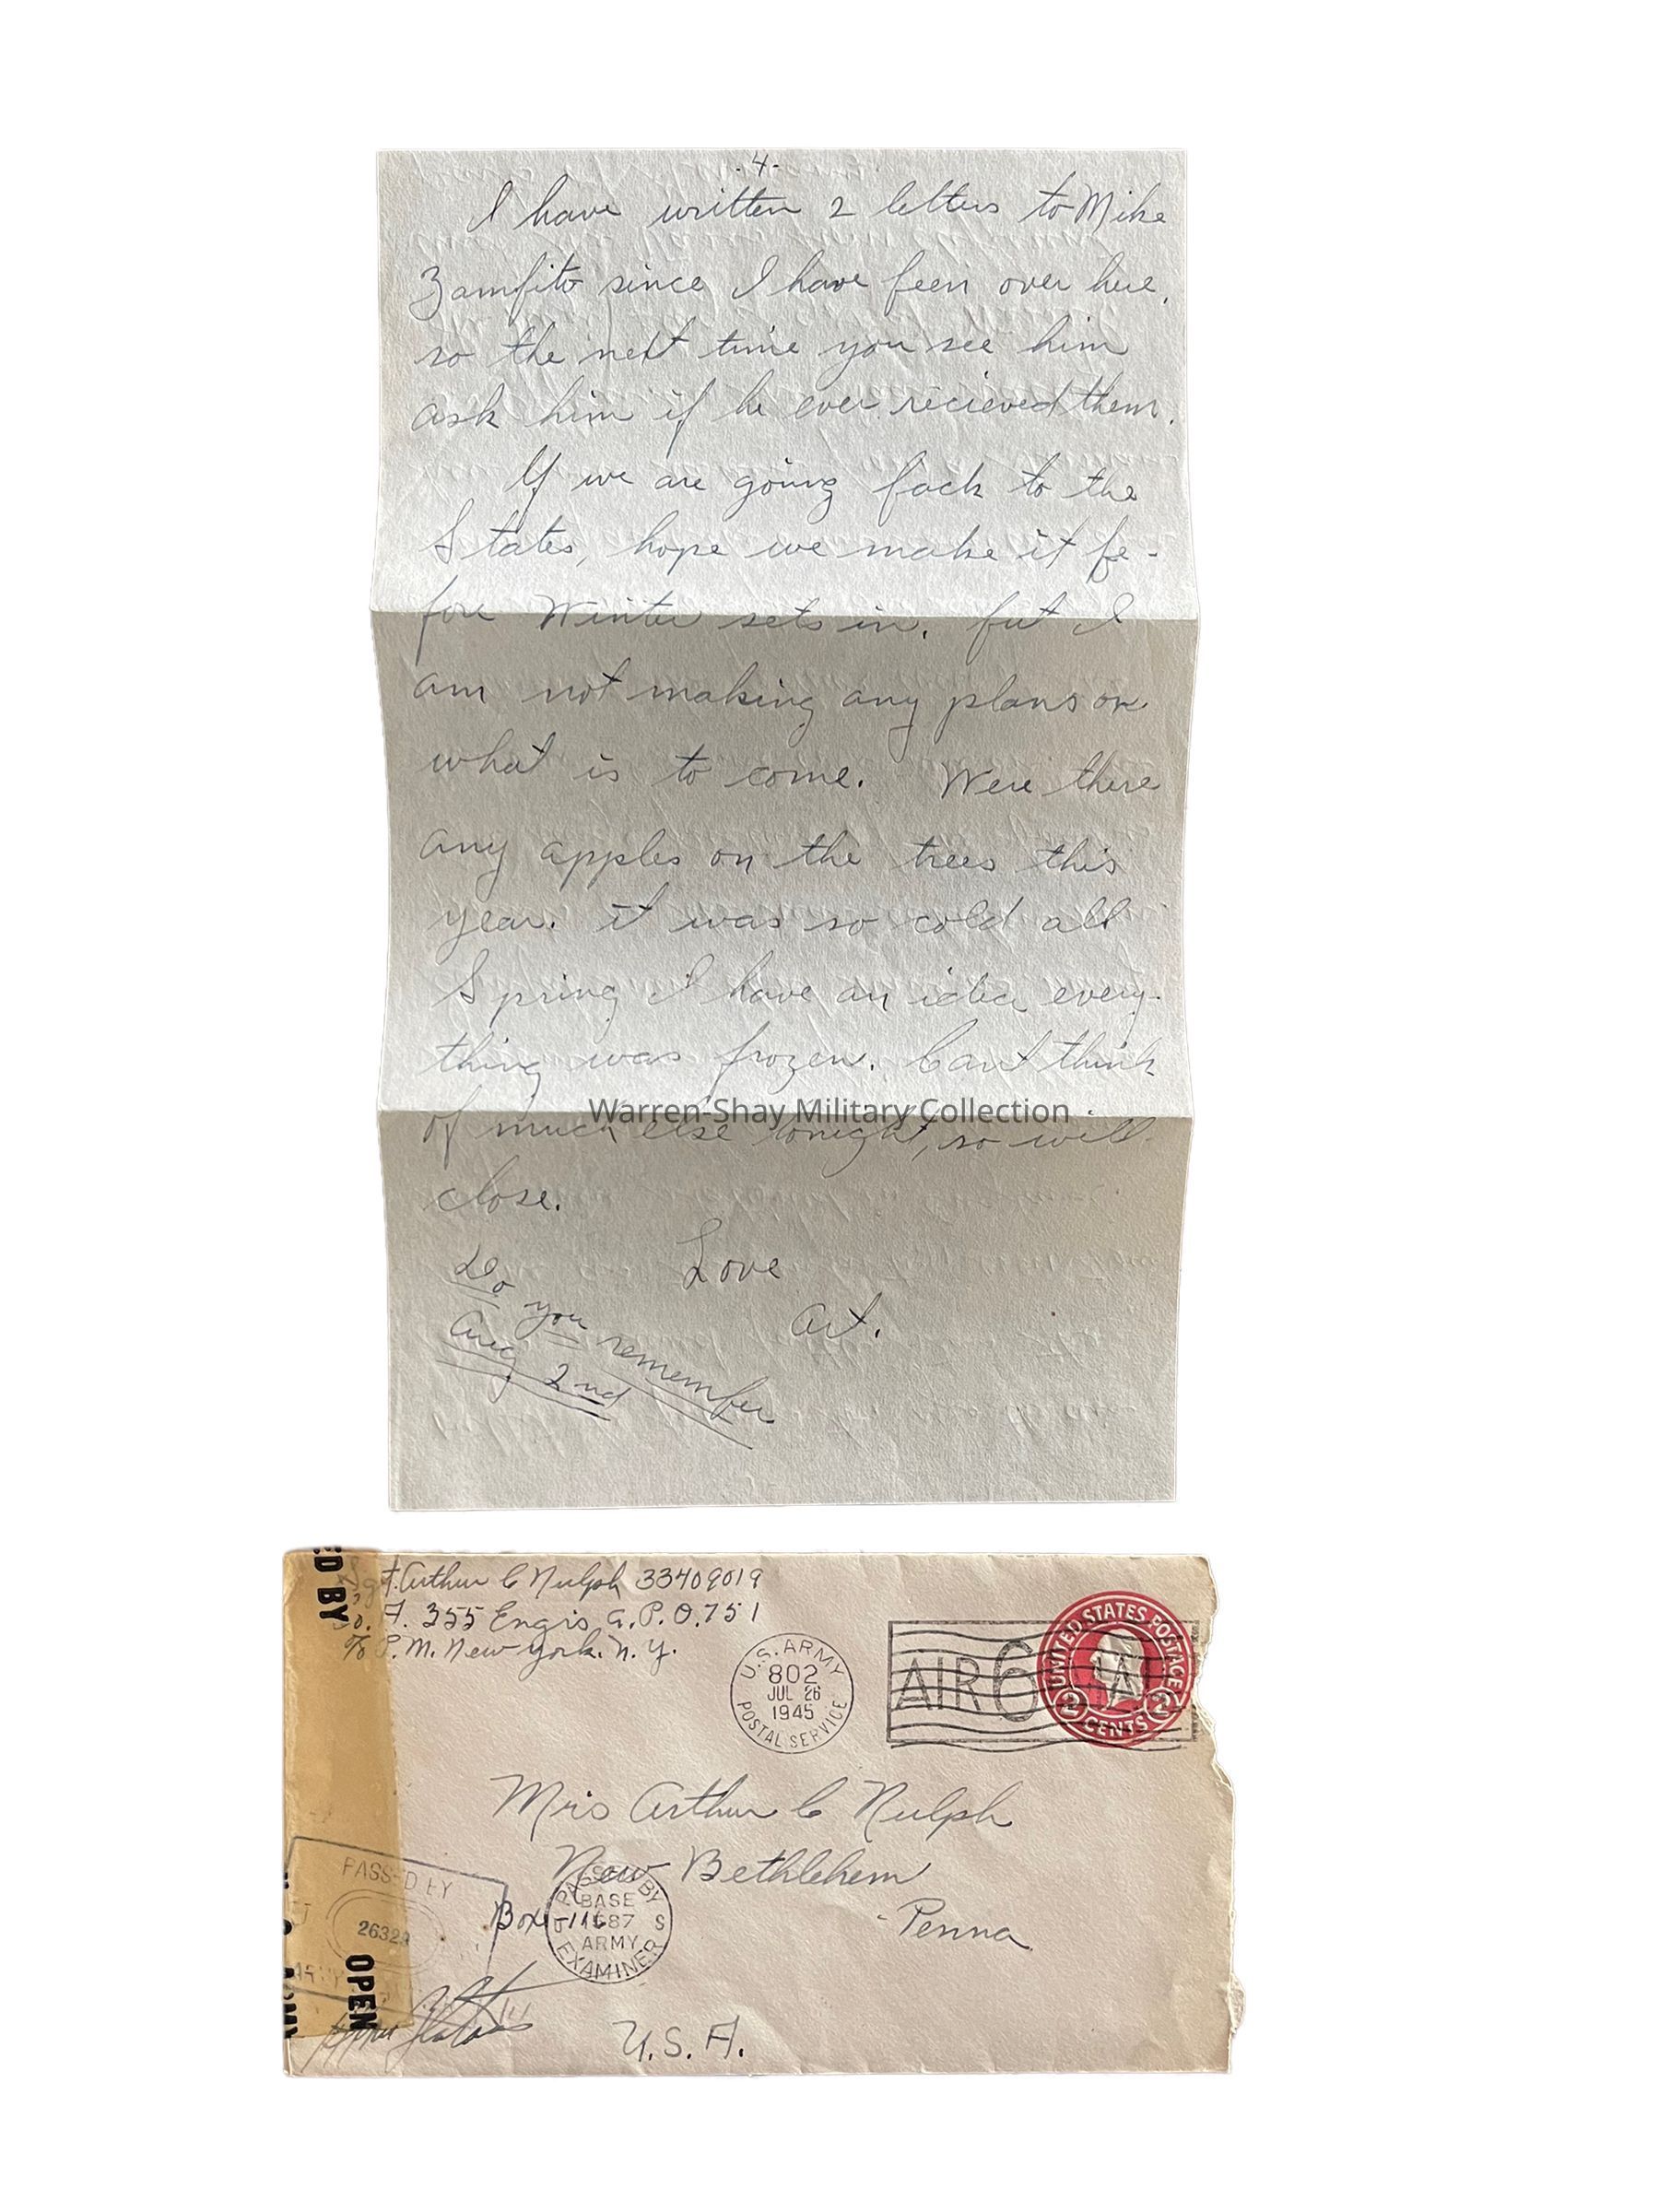 . 4 -
I have written 2 letters to Mike
Zamfito since I have been over here.
so the next time you see him
ask him if he ever recieved them.
If we are going back to the
States, hope we make it be-
fore Winter sets in. but I
am not making any plans on
what is to come. Were there
any apples on the trees this
year. it was so cold all
Spring I have an idea every-
thing was frozen. Cant think
of much else tonight, so will
close.
Love
Art.
Do you remember
Aug 2nd
Warren-Shay Military Collection
Sgt. Arthur C Nulph 33409019
Co. A. 355 Engrs A.P.O. 751
c/o P.M. New York. N.Y.
U.S. ARMY
802
JUL 26
1945
POSTAL SERVICE
AIR 6
UNITED STATES POSTAGE
2 CENTS 2
Mrs Arthur C Nulph
New Bethlehem
Box-116
Penna
U.S.A.
PASSED BY
BASE
1687
ARMY
EXAMINER
U S
PASSED BY
ARMY
ED BY
OPEN